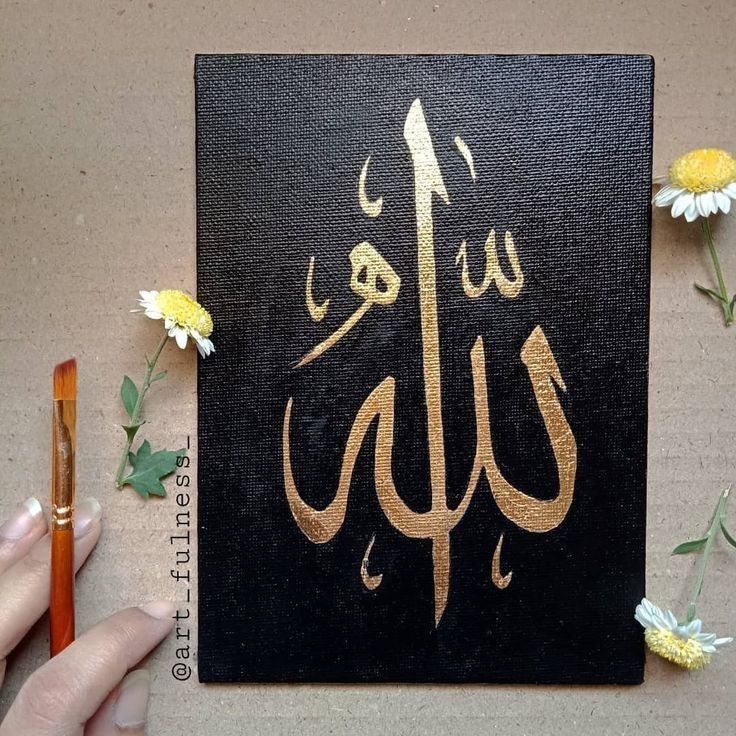 اللّٰهُ
@art_fulness_